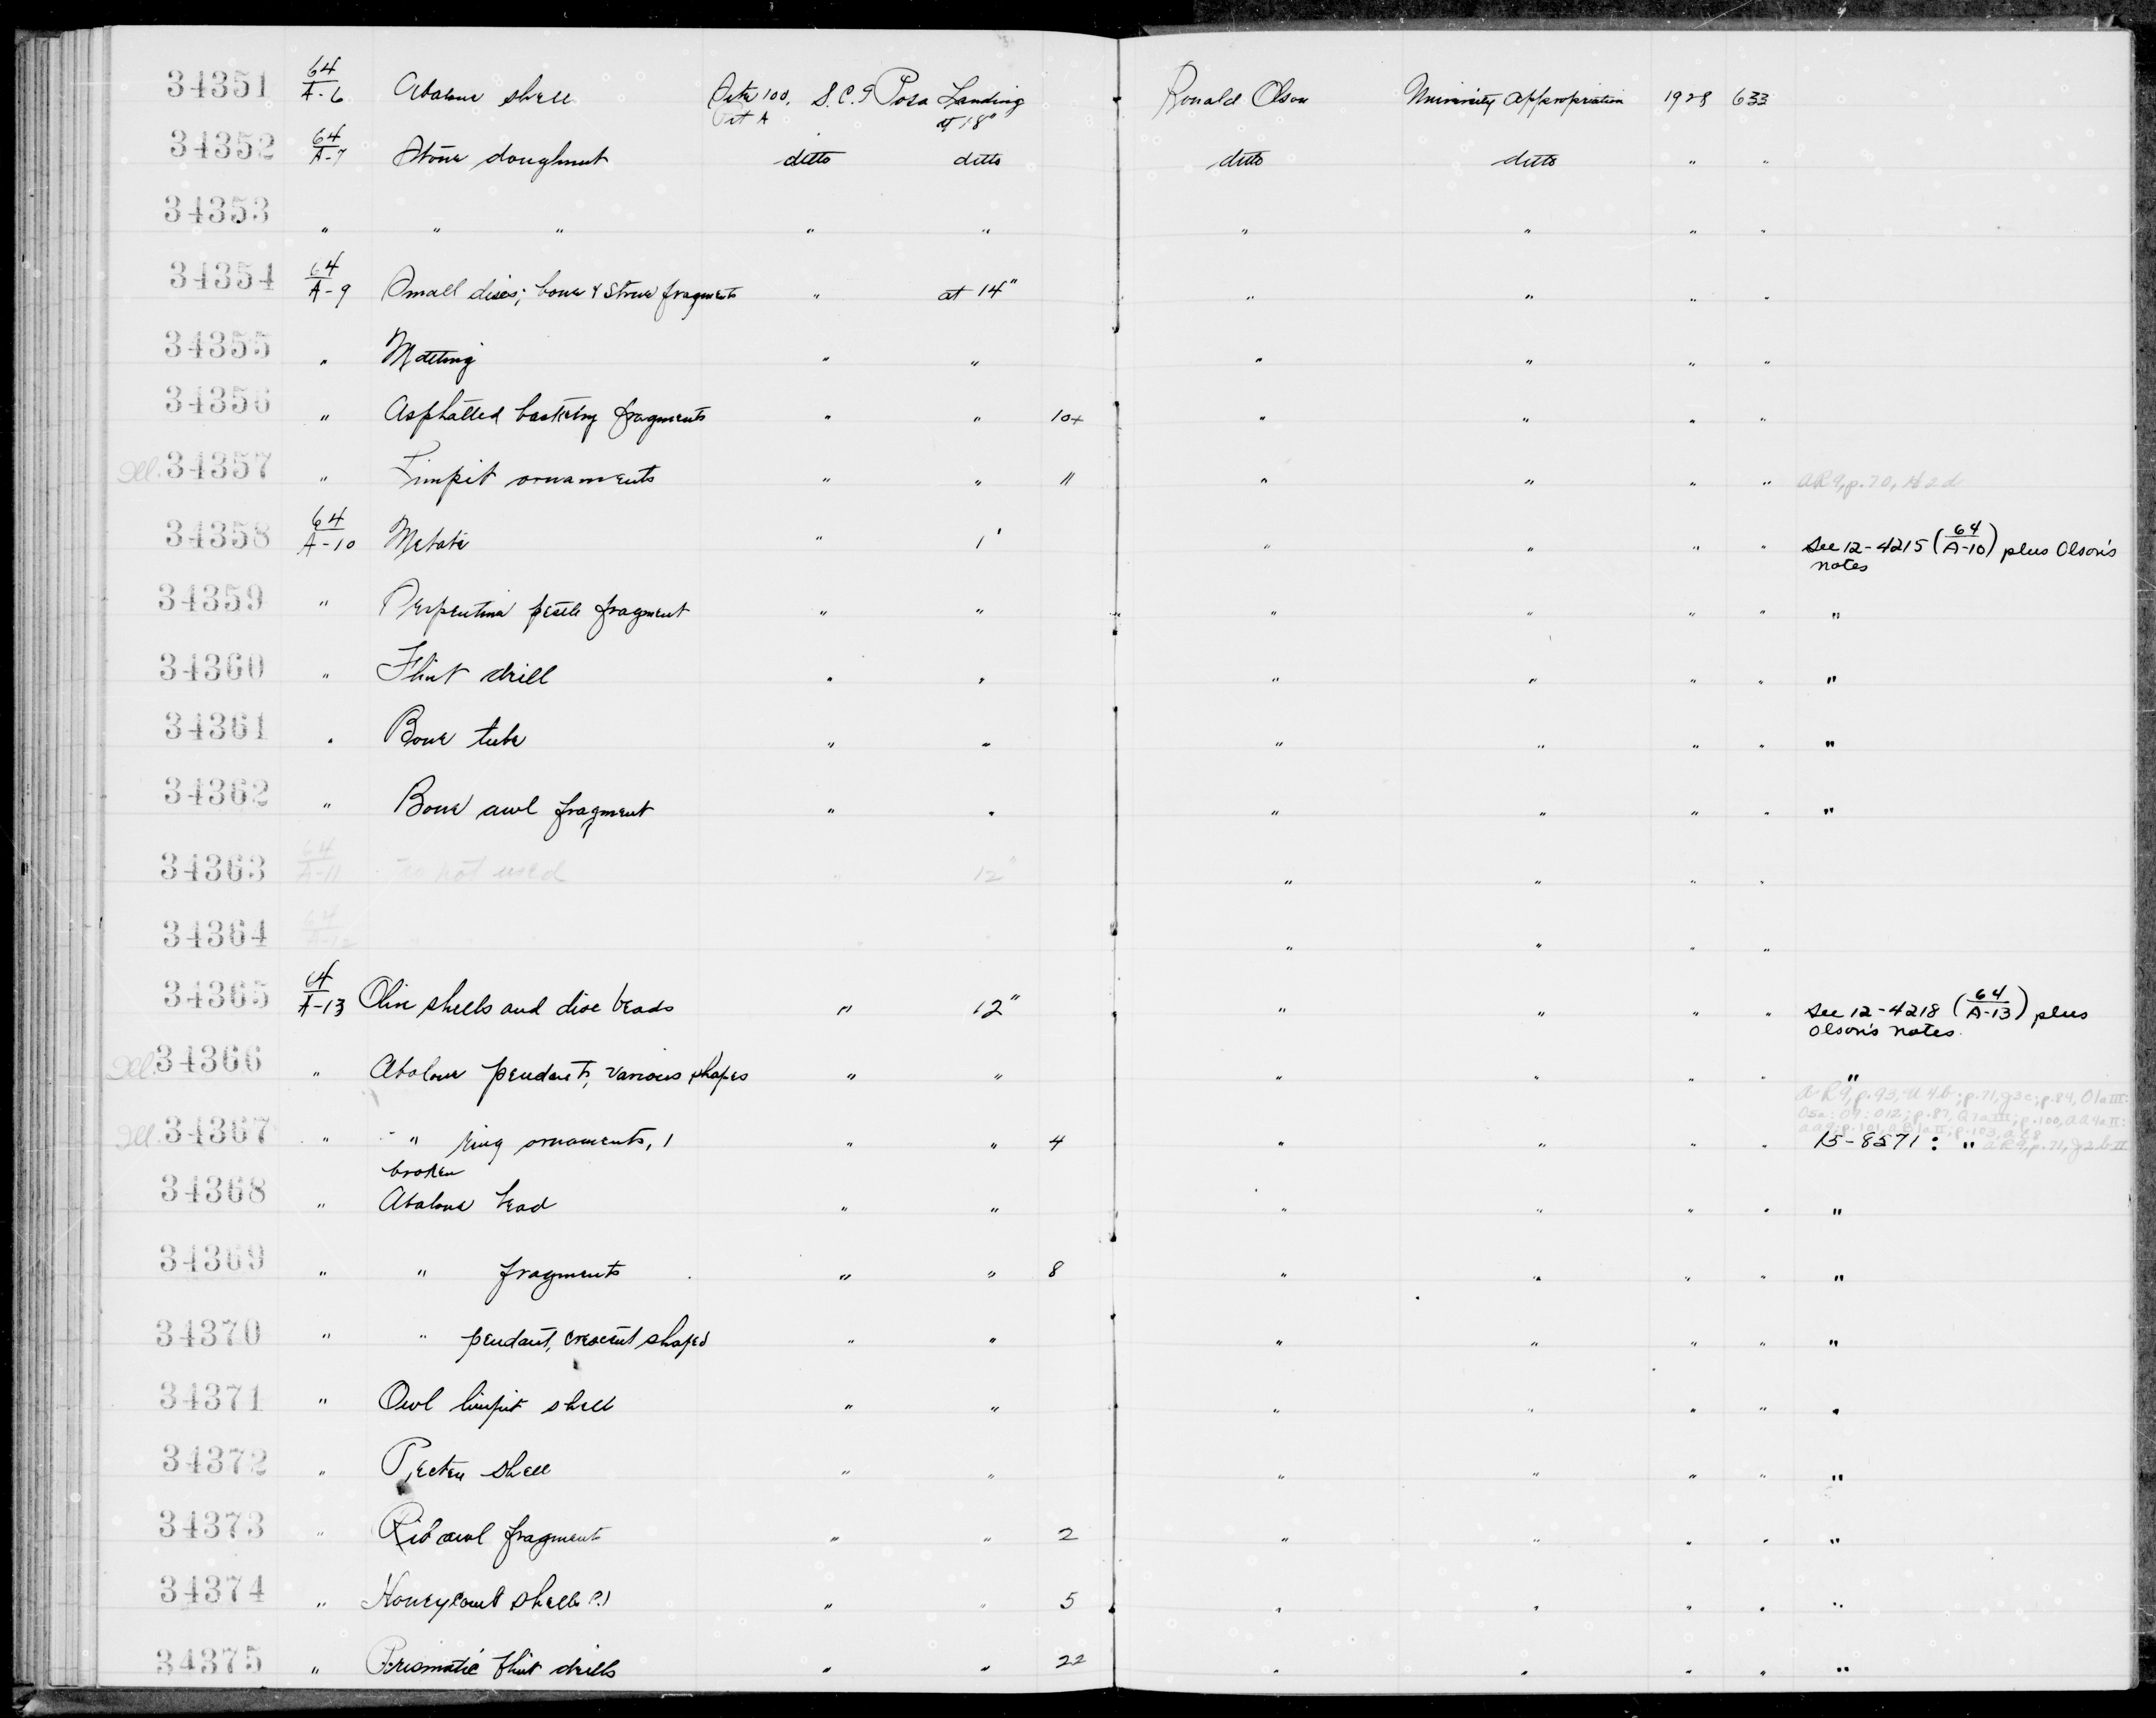 34351 64/A-6 Abalone shell Site 100, S.C.I Posa Landing Ronald Olson University Appropriation 1928 633
Pit A at 18"
34352 64/A-7 Stone doughnut ditto ditto ditto ditto " "
34353 " " " " " " " " "
34354 64/A-9 Small discs; bone & stone fragments " at 14" " " " "
34355 " Matting " " " " " "
34356 " Asphalted basketry fragments " " 10+ " " " "
Ill. 34357 " Limpit ornaments " " 11 " " " " AR9, p.70, H2d
34358 64/A-10 Metate " 1' " " " " See 12-4215 (64/A-10) plus Olson's
notes
34359 " Serpentine pestle fragment " " " " " " "
34360 " Flint drill " " " " " " "
34361 " Bone tube " " " " " " "
34362 " Bone awl fragment " " " " " " "
34363 64/A-11 no not used " 12" " " " "
34364 64/A-12 " " " " " "
34365 64/A-13 Olive shells and disc beads " 12" " " " " See 12-4218 (64/A-13) plus
Olson's notes.
Ill. 34366 " Abalone pendants, various shapes " " " " " " "
AR9, p.93, U4b; p.71, g3c; p.84, O1aIII:
O5a: O9: O12; p.87, Q1aIII; p.100, AA4aII:
AA9; p.101, AB1aII; p.103,
Ill. 34367 " " ring ornaments, 1 " " 4 " " " " 15-8571: " AR9, p.71, g2bII
broken
34368 " Abalone bead " " " " " " "
34369 " " fragments " " 8 " " " " "
34370 " " pendant, crescent shaped " " " " " " "
34371 " Owl limpit shell " " " " " " "
34372 " Pecten shell " " " " " " "
34373 " Rib awl fragments " " 2 " " " " "
34374 " Honeycomb shells (?) " " 5 " " " " "
34375 " Prismatic flint drills " " 22 " " " " "